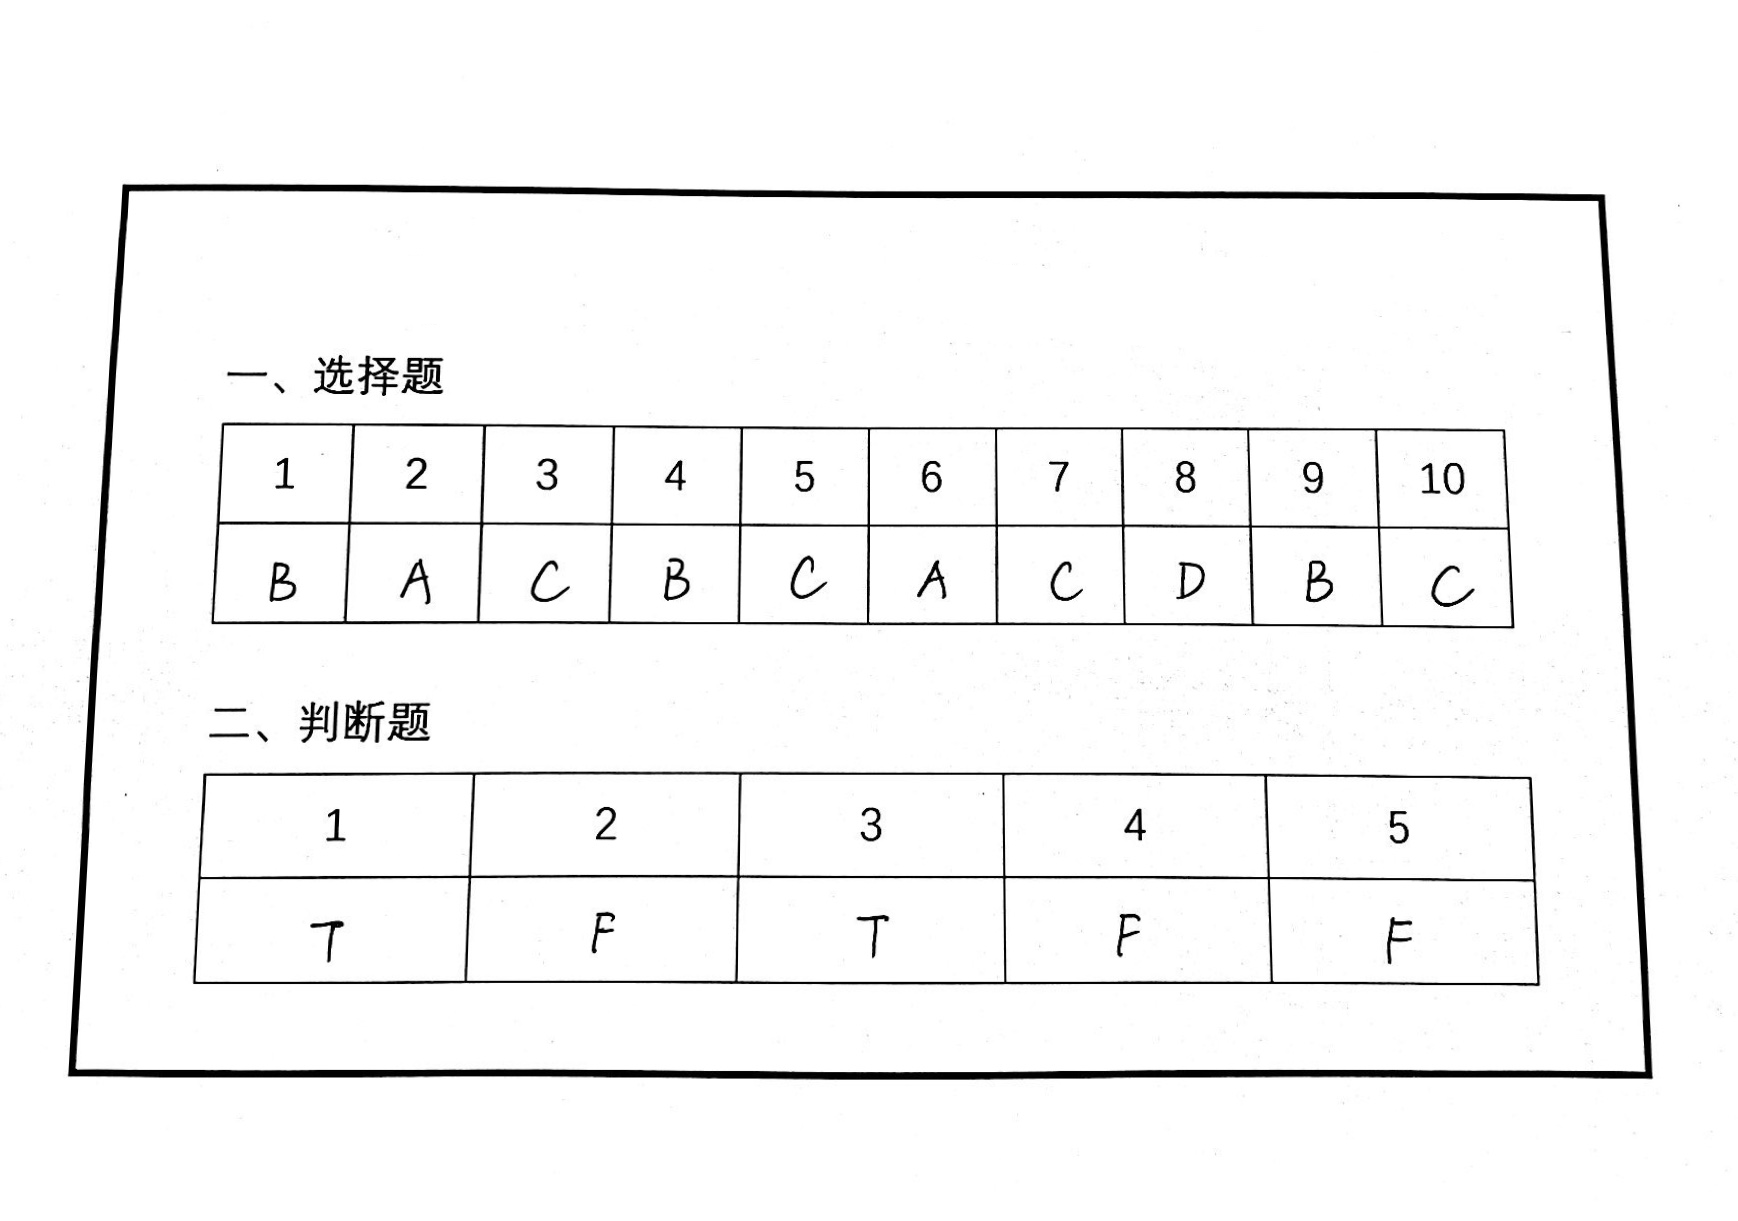 一、选择题
1 2 3 4 5 6 7 8 9 10
B A C B C A C D B C
二、判断题
1 2 3 4 5
T F T F F